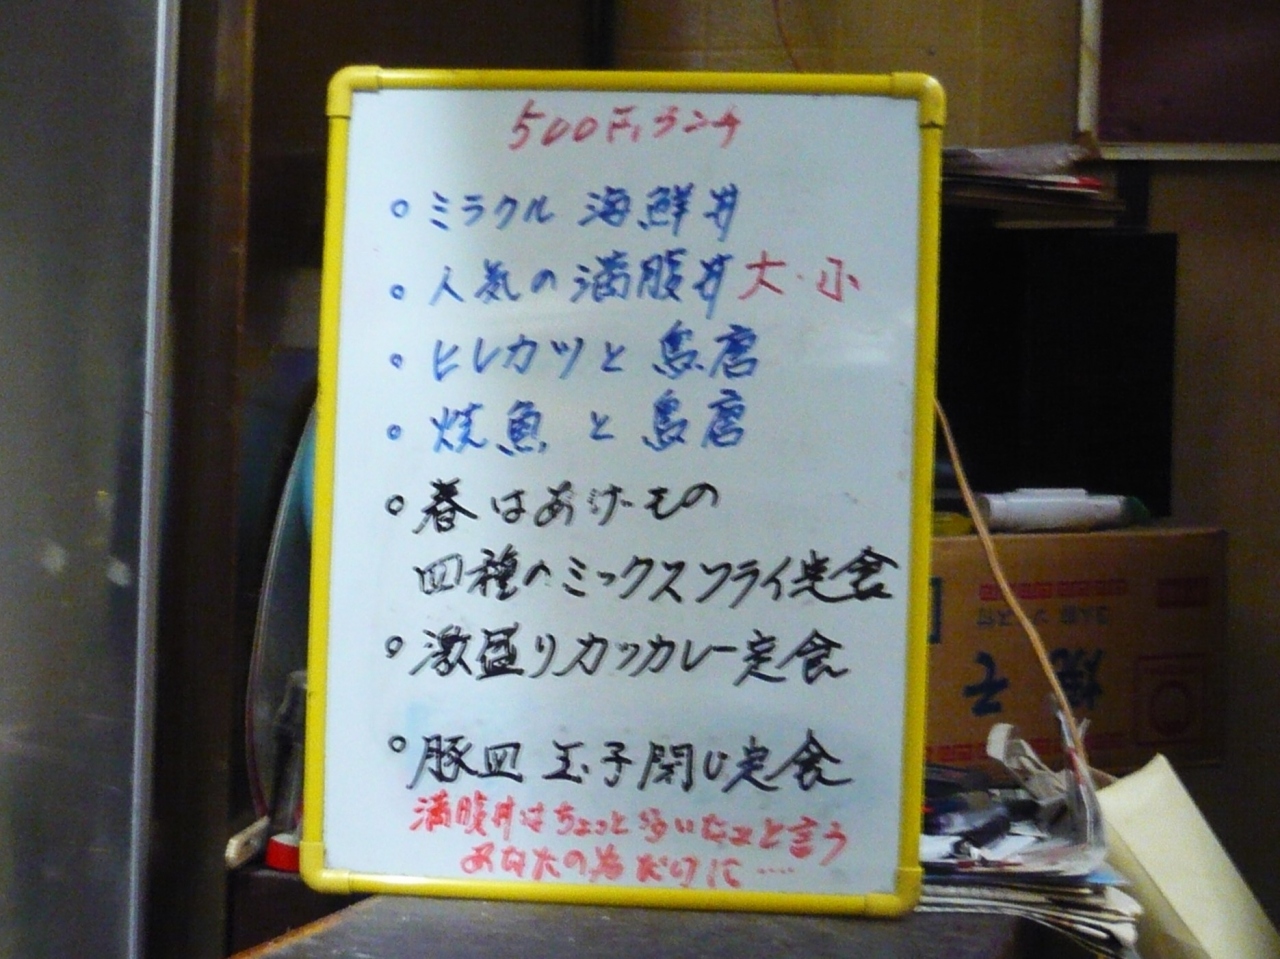 500円ランチ
ミラクル 海鮮丼
人気の満腹丼 大・小
ヒレカツと鳥唐
焼魚と鳥唐
春はあげもの
四種のミックスフライ定食
激盛りカツカレー定食
豚皿 玉子閉じ定食
満腹丼はちょっと多いなぁと言う
あなたの為だけに‥‥
焼そ